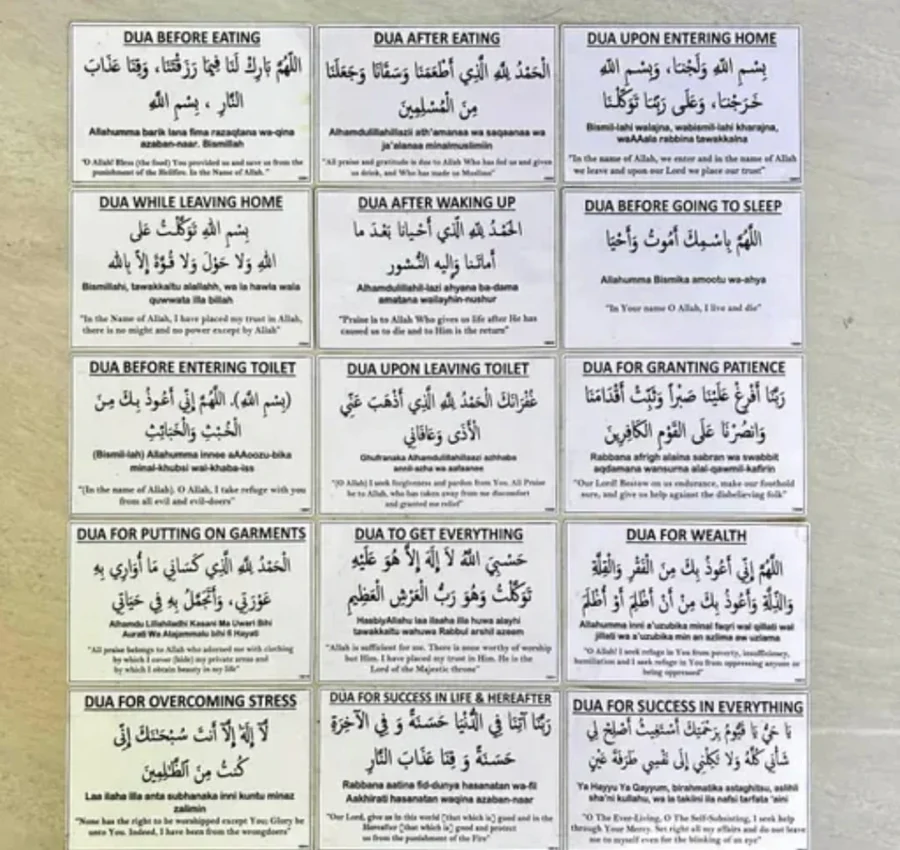 DUA BEFORE EATING
اللَّهُمَّ بَارِكْ لَنَا فِيمَا رَزَقْتَنَا، وَقِنَا عَذَابَ
النَّارِ ، بِسْمِ اللَّهِ
Allahumma barik lana fima razaqtana wa-qina
azaban-naar. Bismillah
"O Allah! Bless (the food) You provided us and save us from the
punishment of the Hellfire. In the Name of Allah."
DUA AFTER EATING
الْحَمْدُ لِلَّهِ الَّذِي أَطْعَمَنَا وَسَقَانَا وَجَعَلَنَا
مِنَ الْمُسْلِمِينَ
Alhamdulillahillazii ath'amanaa wa saqaanaa wa
ja'alanaa minalmuslimiin
"All praise and gratitude is due to Allah Who has fed us and given
us drink, and Who has made us Muslims"
DUA UPON ENTERING HOME
بِسْمِ اللَّهِ وَلَجْنَا، وَبِسْمِ اللَّهِ
خَرَجْنَا، وَعَلَى رَبِّنَا تَوَكَّلْنَا
Bismil-lahi walajna, wabismil-lahi kharajna,
waAAala rabbina tawakkalna
"In the name of Allah, we enter and in the name of Allah
we leave and upon our Lord we place our trust"
DUA WHILE LEAVING HOME
بِسْمِ اللهِ تَوَكَّلْتُ عَلى
اللهِ وَلا حَوْلَ وَلا قُوَّةَ إِلاَّ بِالله
Bismillahi, tawakkaltu alallahh, wa la hawla wala
quwwata illa billah
"In the Name of Allah, I have placed my trust in Allah,
there is no might and no power except by Allah"
DUA AFTER WAKING UP
الحَمْدُ للهِ الَّذِي أَحْيانا بَعْدَ ما
أماتَنا وَإليه النُّشور
Alhamdulillahil-lazi ahyana ba-dama
amatana wailayhin-nushur
"Praise is to Allah Who gives us life after He has
caused us to die and to Him is the return"
DUA BEFORE GOING TO SLEEP
اللَّهُمَّ بِاسْمِكَ أَمُوتُ وَأَحْيَا
Allahumma Bismika amootu wa-ahya
"In Your name O Allah, I live and die"
DUA BEFORE ENTERING TOILET
(بِسْمِ اللَّهِ). اللَّهُمَّ إِنِّي أَعُوذُ بِكَ مِنَ
الْخُبْثِ وَالْخَبَائِثِ
(Bismil-lah) Allahumma innee aAAoozu-bika
minal-khubsi wal-khaba-iss
"(In the name of Allah). O Allah, I take refuge with you
from all evil and evil-doers"
DUA UPON LEAVING TOILET
غُفْرَانَكَ الْحَمْدُ لِلَّهِ الَّذِي أَذْهَبَ عَنِّي
الْأَذَى وَعَافَانِي
Ghufranaka Alhamdulillahillaazi azhhaba
annil-azha wa aafaanee
"(O Allah) I seek forgiveness and pardon from You. All Praise
be to Allah, who has taken away from me discomfort
and granted me relief"
DUA FOR GRANTING PATIENCE
رَبَّنَا أَفْرِغْ عَلَيْنَا صَبْراً وَثَبِّتْ أَقْدَامَنَا
وَانصُرْنَا عَلَى القَوْمِ الكَافِرِينَ
Rabbana afrigh alaina sabran wa swabbit
aqdamana wansurna alal-qawmil-kafirin
"Our Lord! Bestow on us endurance, make our foothold
sure, and give us help against the disbelieving folk"
DUA FOR PUTTING ON GARMENTS
الْحَمْدُ لِلَّهِ الَّذِي كَسَانِي مَا أُوَارِي بِهِ
عَوْرَتِي، وَأَتَجَمَّلُ بِهِ فِي حَيَاتِي
Alhamdu Lillahiladhi Kasani Ma Uwari Bihi
Aurati Wa Atajammalu bihi fi Hayati
"All praise belongs to Allah who adorned me with clothing
by which I cover (hide) my private areas and
by which I obtain beauty in my life"
DUA TO GET EVERYTHING
حَسْبِيَ اللَّهُ لَا إِلَهَ إِلَّا هُوَ عَلَيْهِ
تَوَكَّلْتُ وَهُوَ رَبُّ الْعَرْشِ الْعَظِيمِ
HasbiyAllahu laa ilaaha illa huwa alayhi
tawakkaltu wahuwa Rabbul arshil azeem
"Allah is sufficient for me. There is none worthy of worship
but Him. I have placed my trust in Him. He is the
Lord of the Majestic throne"
DUA FOR WEALTH
اللَّهُمَّ إِنِّي أَعُوذُ بِكَ مِنَ الْفَقْرِ وَالْقِلَّةِ
وَالذِّلَّةِ وَأَعُوذُ بِكَ مِنْ أَنْ أَظْلِمَ أَوْ أُظْلَمَ
Allahumma inni a'uzubika minal faqri wal qillati wal
jillati wa a'uzubika min an azlima aw uzlama
"O Allah! I seek refuge in You from poverty, insufficiency,
humiliation and I seek refuge in You from oppressing anyone or
being oppressed"
DUA FOR OVERCOMING STRESS
لَّآ إِلَٰهَ إِلَّآ أَنتَ سُبْحَٰنَكَ إِنِّى
كُنتُ مِنَ ٱلظَّٰلِمِينَ
Laa ilaha illa anta subhanaka inni kuntu minaz
zalimin
"None has the right to be worshipped except You; Glory be
unto You. Indeed, I have been from the wrongdoers"
DUA FOR SUCCESS IN LIFE & HEREAFTER
رَبَّنَا آتِنَا فِي الدُّنْيَا حَسَنَةً وَ فِي الآخِرَةِ
حَسَنَةً وَ قِنَا عَذَابَ النَّارِ
Rabbana aatina fid-dunya hasanatan wa-fil
Aakhirati hasanatan waqina azaban-naar
"Our Lord, give us in this world [that which is] good and in the
Hereafter [that which is] good and protect
us from the punishment of the Fire"
DUA FOR SUCCESS IN EVERYTHING
يَا حَيُّ يَا قَيُّومُ بِرَحْمَتِكَ أَسْتَغِيثُ أَصْلِحْ لِي
شَأْنِي كُلَّهُ وَلَا تَكِلْنِي إِلَى نَفْسِي طَرْفَةَ عَيْنٍ
Ya Hayyu Ya Qayyum, birahmatika astaghitsu, aslihli
sha'ni kullahu, wa la takilni ila nafsi tarfata 'aini
"O The Ever-Living, O The Self-Subsisting, I seek help
through Your Mercy. Set right all my affairs and do not leave
me to myself even for the blinking of an eye"